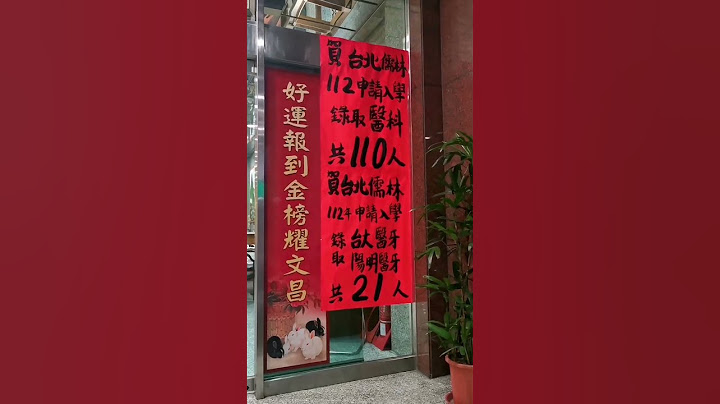 賀台北儒林
112申請入學
錄取醫科
共110人
賀台北儒林
112年申請入學
錄取 台大醫牙
陽明醫牙
共21人
好運報到金榜耀文昌